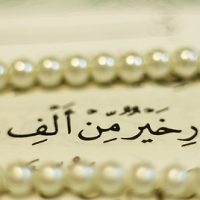 رِ خَيْرٌ مِّنْ أَلْفِ